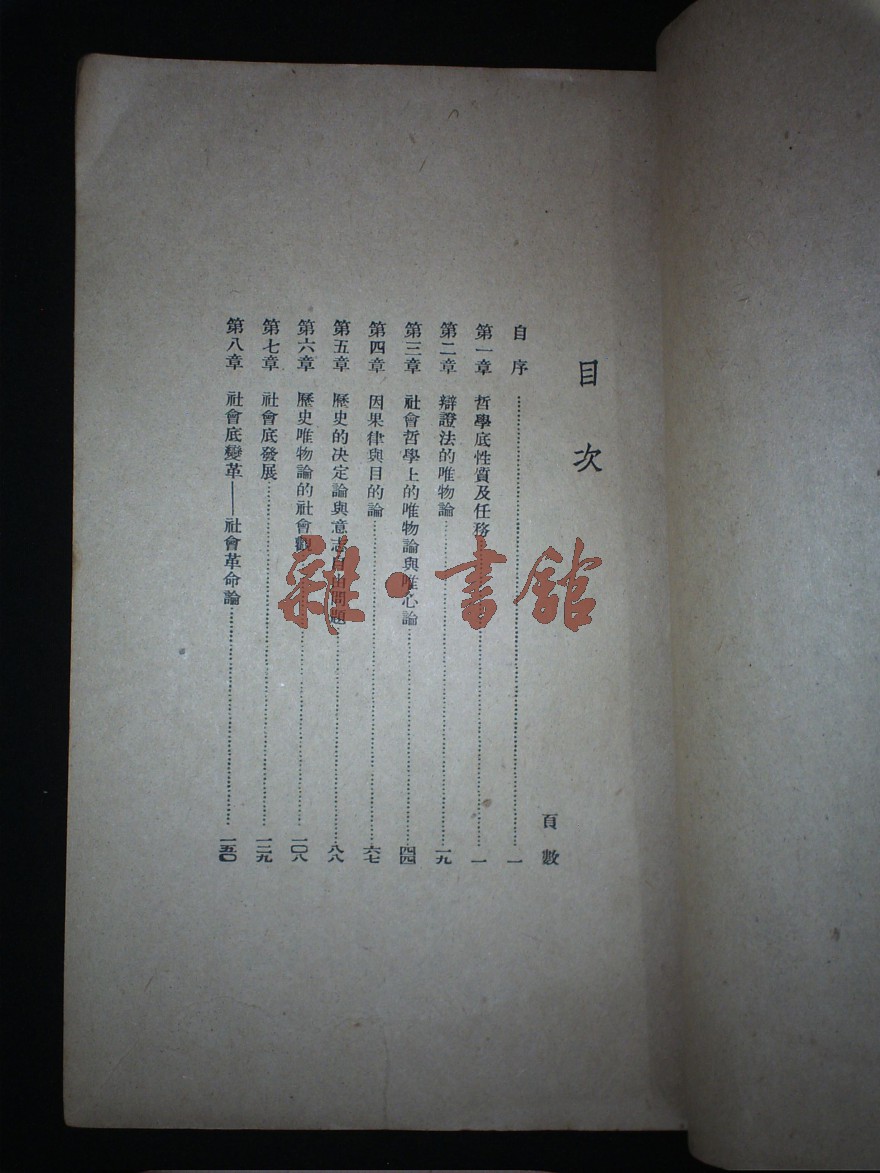 目次
頁數
自序……一
第一章 哲學底性質及任務……一
第二章 辯證法的唯物論……一九
第三章 社會哲學上的唯物論與唯心論……四四
第四章 因果律與目的論……六七
第五章 歷史的决定論與意志自由問題……八八
第六章 歷史唯物論的社會觀……一〇八
第七章 社會底發展……一二九
第八章 社會底變革——社會革命論……一五〇
雜·書館